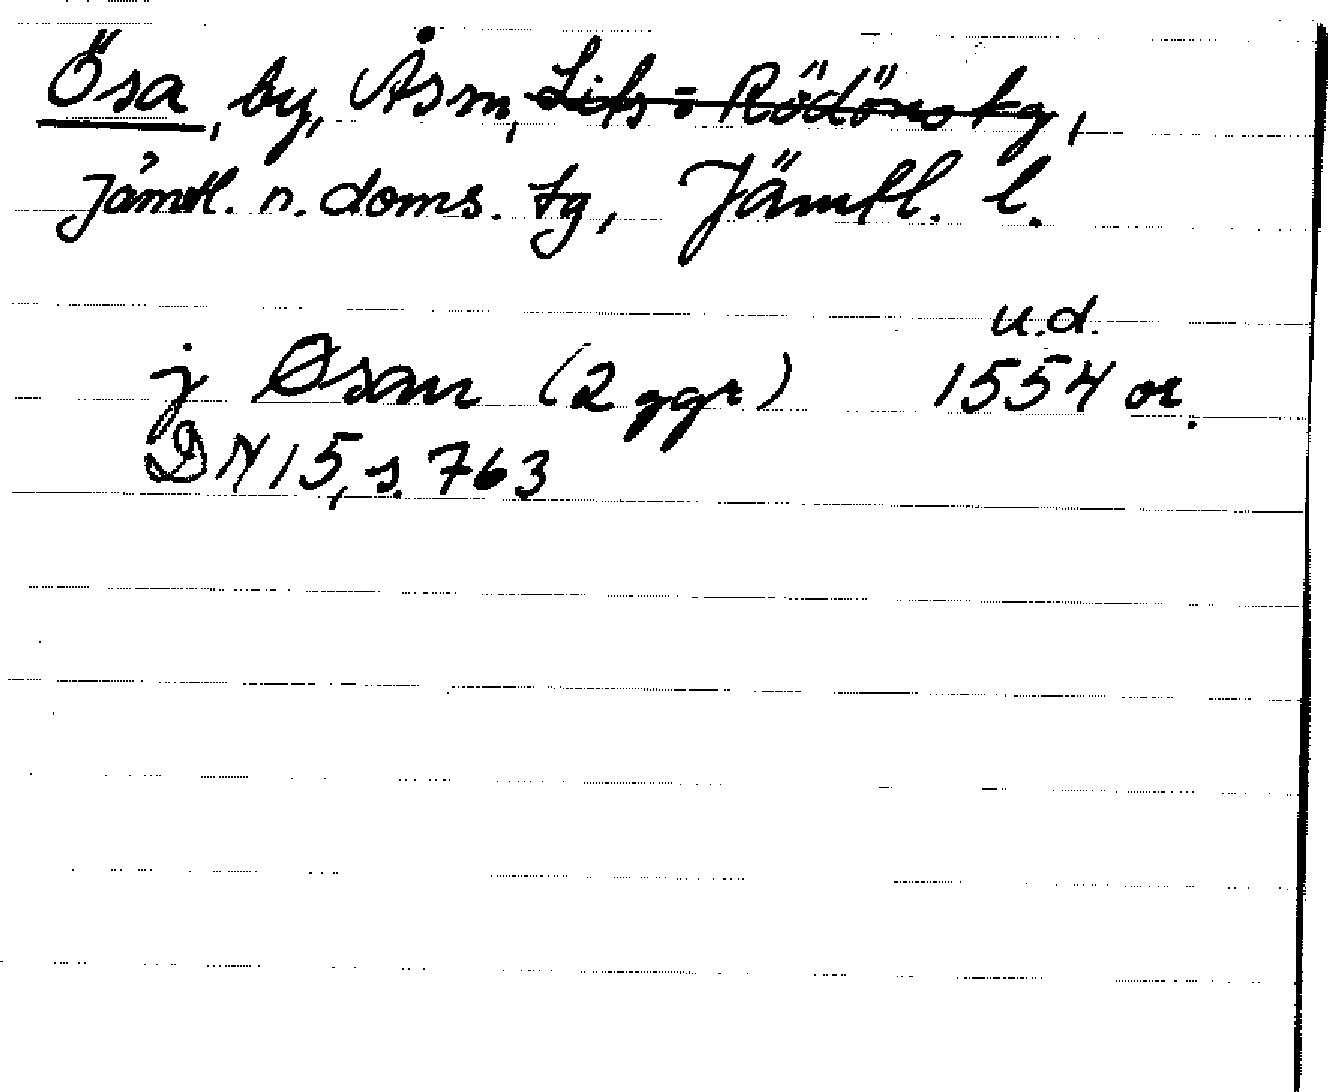 Ösa, by, Ås sn, ~~Lits o Rödöns tg~~,
Jämtl. n. doms. tg, Jämtl. l.
u.d.
j Øsam (2 ggr) 1554 or.
DN 15, s. 763